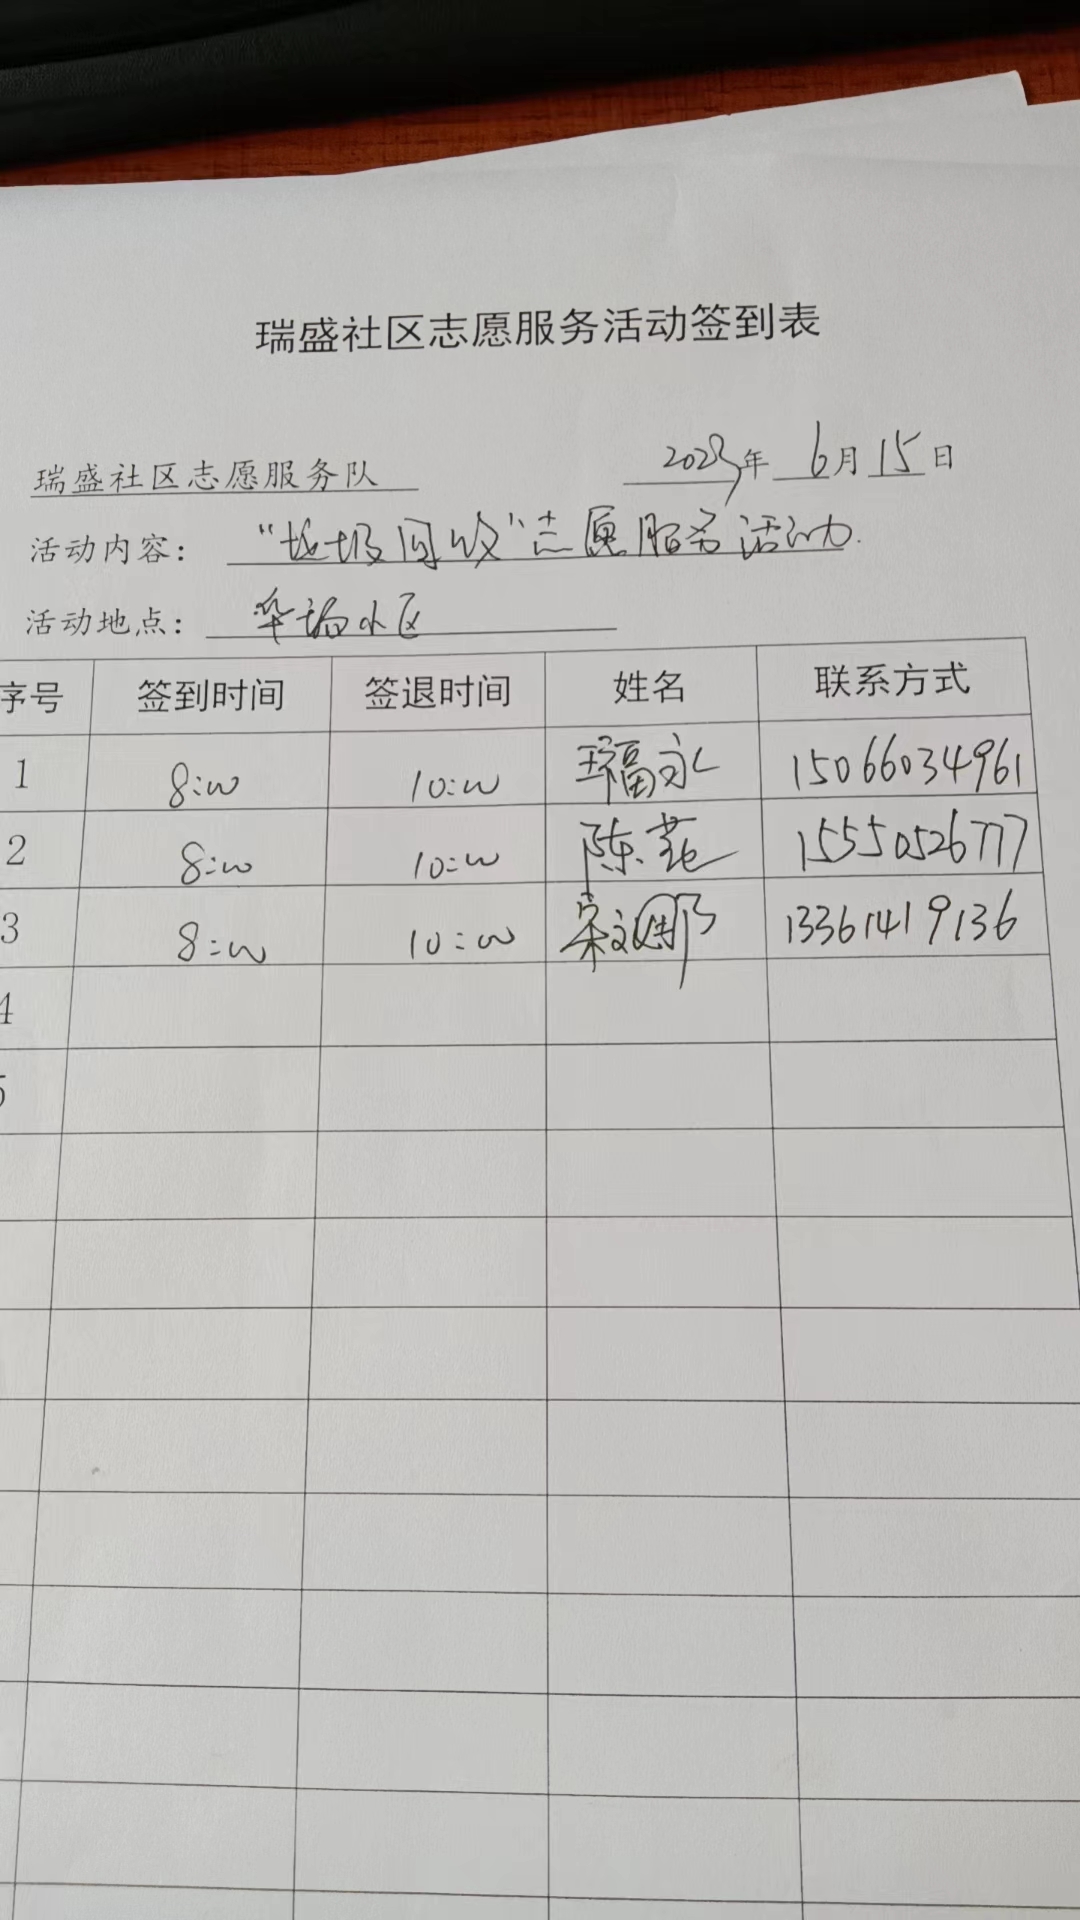 瑞盛社区志愿服务活动签到表
瑞盛社区志愿服务队 2023年 6月 15日
活动内容： “垃圾回收”志愿服务活动.
活动地点： 华瑞小区
序号 签到时间 签退时间 姓名 联系方式
1 8:00 10:00 福永 15066034961
2 8:00 10:00 陈 15550526777
3 8:00 10:00 宋文娜 13361419136
4
5